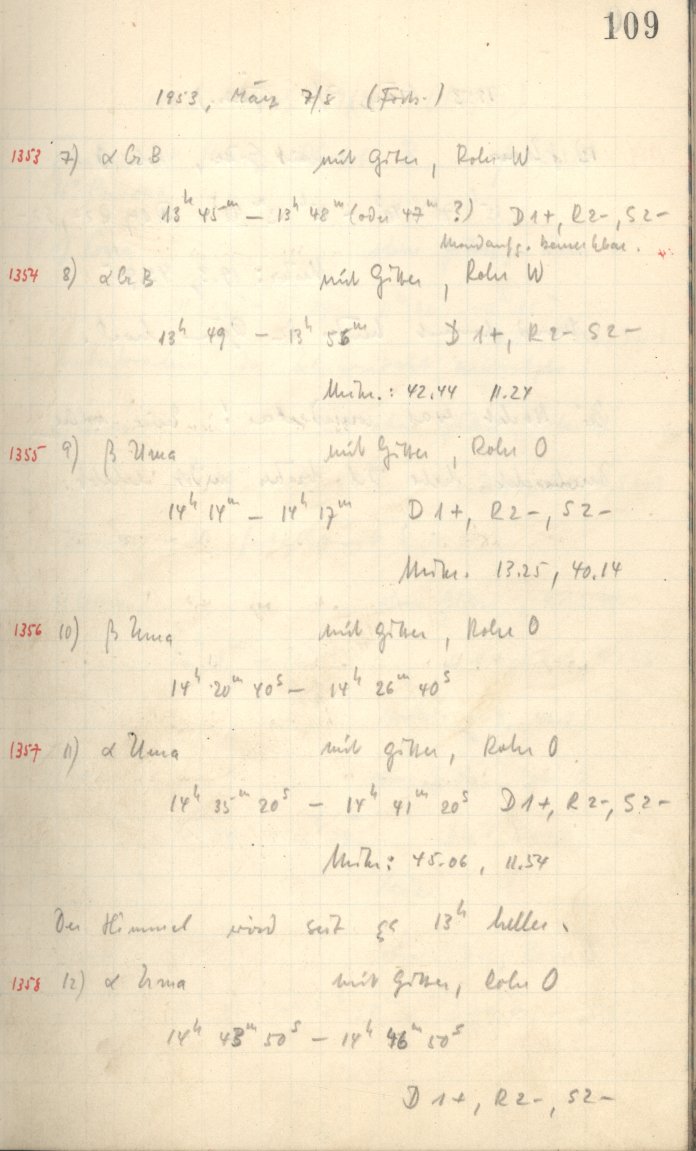 109
1953, März 7/8 (Forts.)
1353 7) α Cr B mit Gitter, Rohr W
13ʰ 45ᵐ — 13ʰ 48ᵐ (oder 47ᵐ ?) D 1+, R 2-, S 2-
Mondaufg. bemerkbar.
1354 8) α Cr B mit Gitter, Rohr W
13ʰ 49 — 13ʰ 55ᵐ D 1+, R 2- S 2-
Mikr.: 42.44 11.24
1355 9) β Uma mit Gitter, Rohr O
14ʰ 14ᵐ — 14ʰ 17ᵐ D 1+, R 2-, S 2-
Mikr. 13.25, 40.14
1356 10) β Uma mit Gitter, Rohr O
14ʰ 20ᵐ 40ˢ — 14ʰ 26ᵐ 40ˢ
1357 11) α Uma mit Gitter, Rohr O
14ʰ 35ᵐ 20ˢ — 14ʰ 41ᵐ 20ˢ D 1+, R 2-, S 2-
Mikr: 45.06, 11.54
Der Himmel wird seit ca 13ʰ heller.
1358 12) α Uma mit Gitter, Rohr O
14ʰ 43ᵐ 50ˢ — 14ʰ 46ᵐ 50ˢ
D 1+, R 2-, S 2-